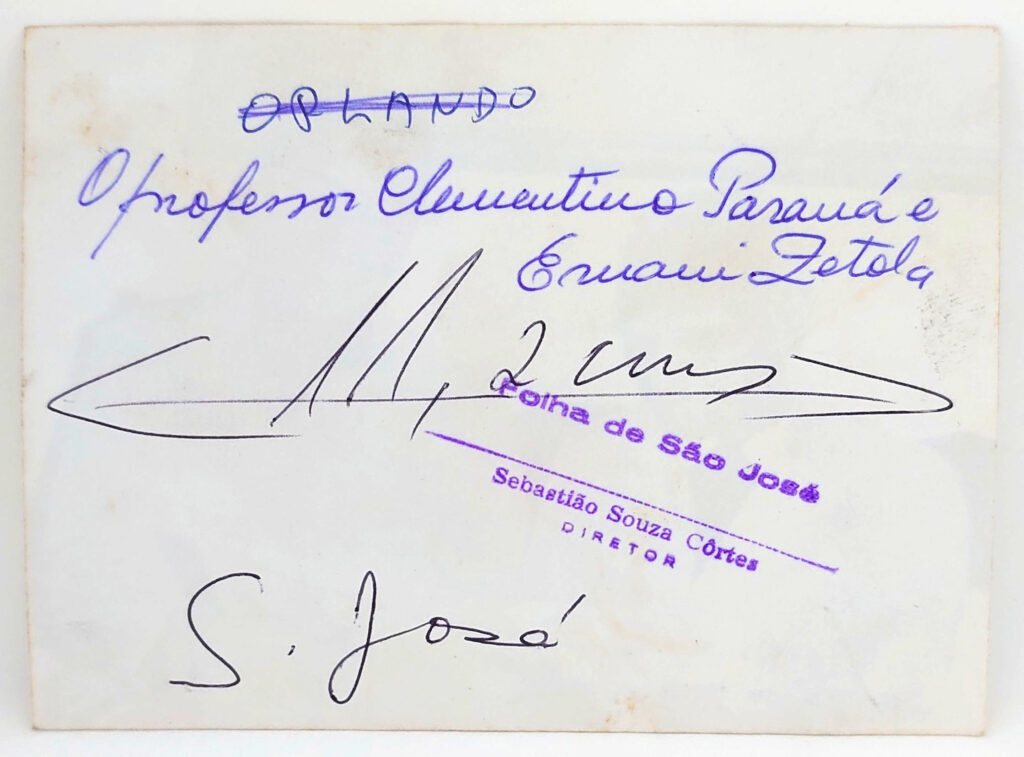 ORLANDO
O professor Clementino Paraná e
Ernani Zetola
Folha de São José
Sebastião Souza Côrtes
DIRETOR
S. José